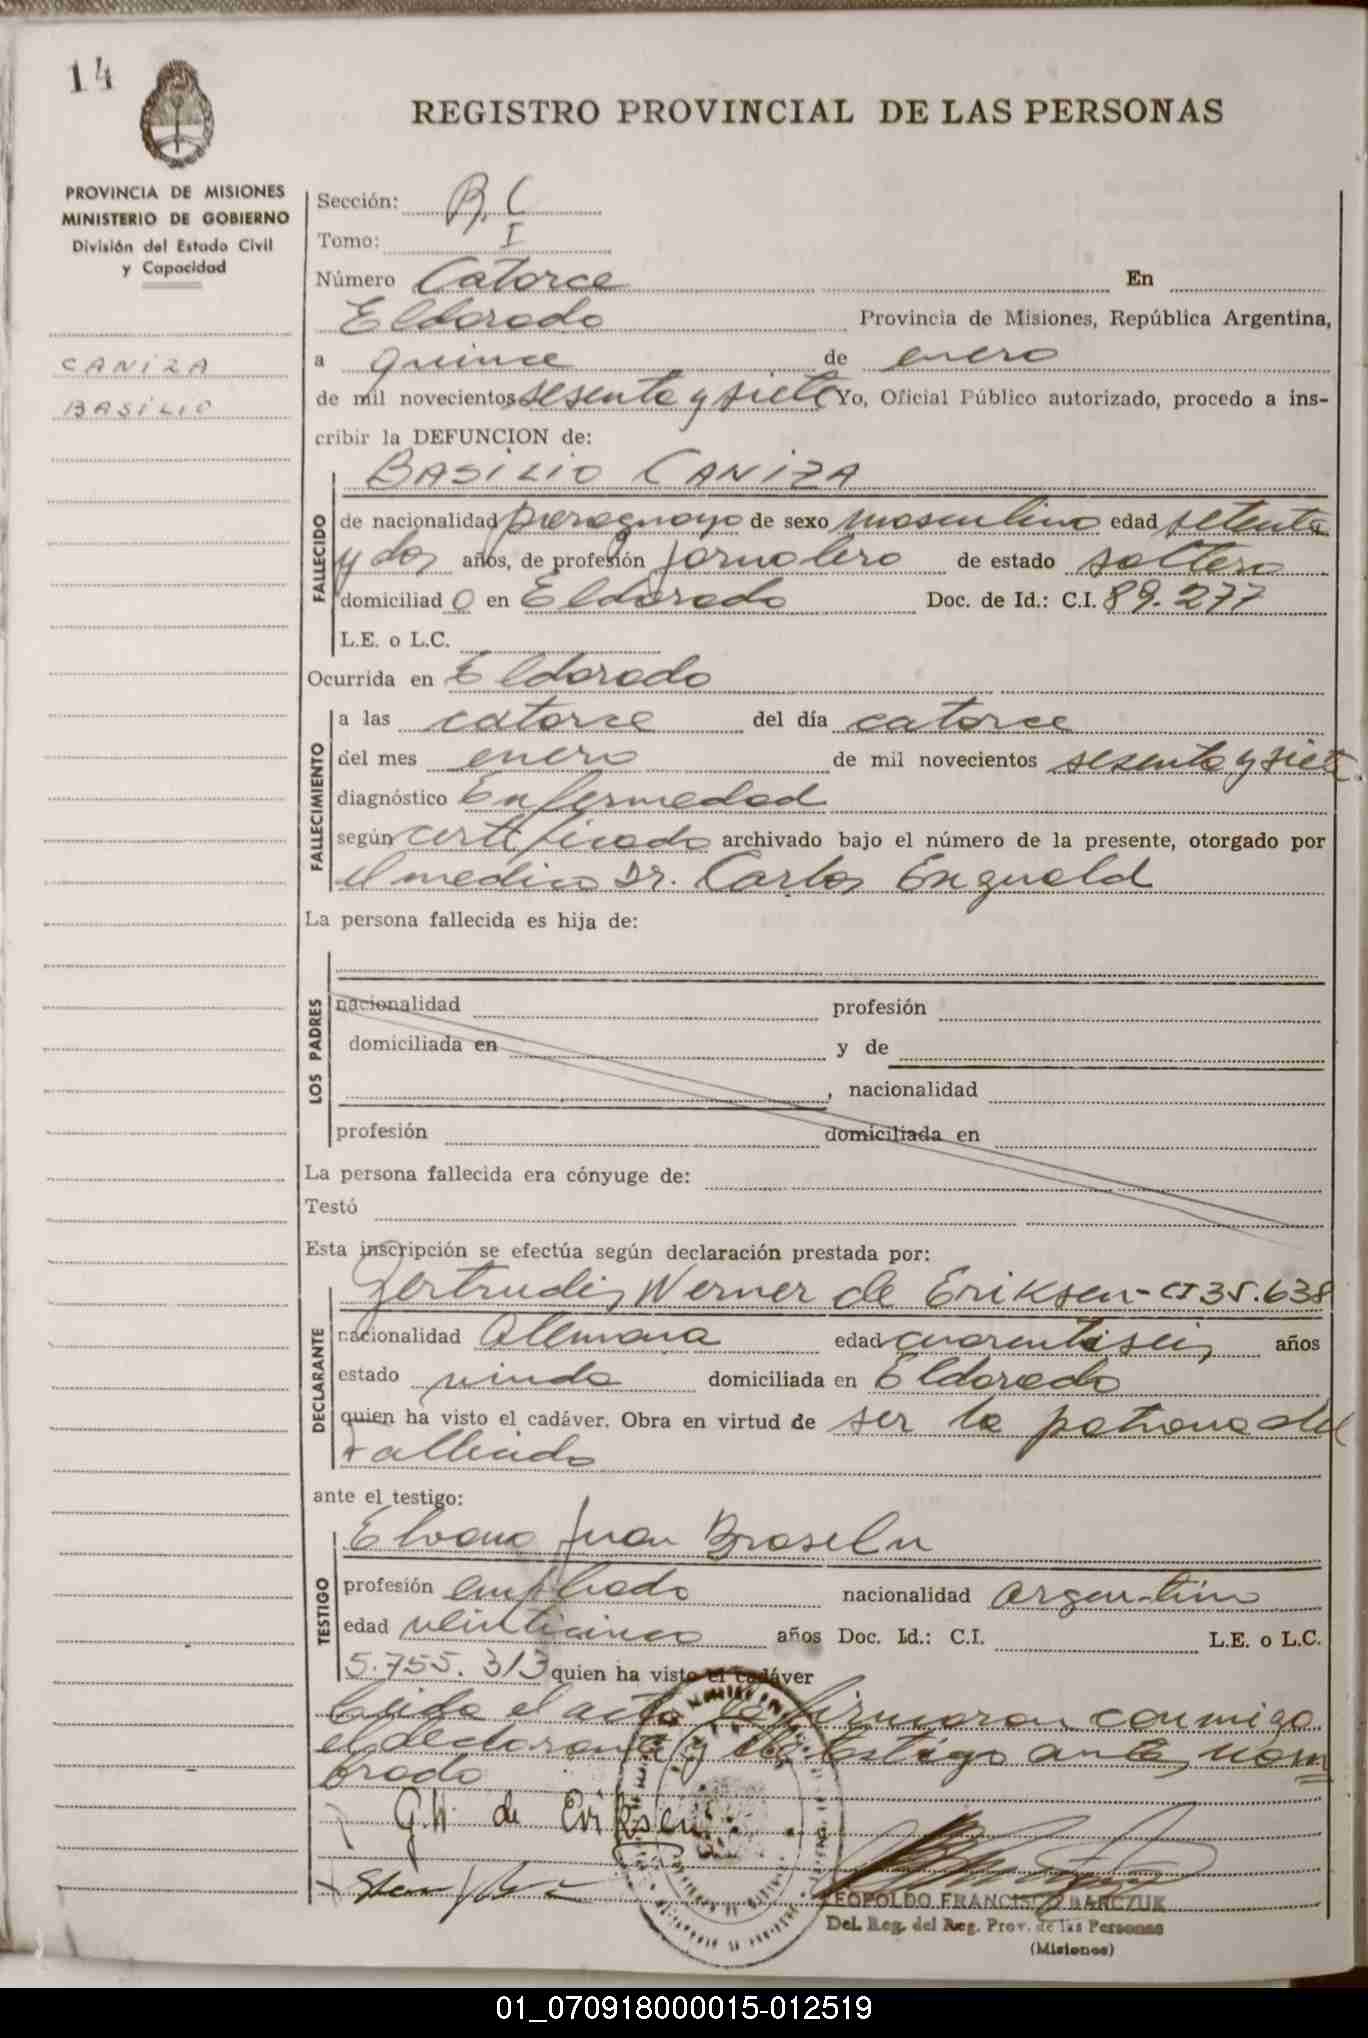 14
REGISTRO PROVINCIAL DE LAS PERSONAS
PROVINCIA DE MISIONES
MINISTERIO DE GOBIERNO
División del Estado Civil
y Capacidad
CANIZA
BASILIO
Sección: B. C
Tomo: I
Número Catorce En
Eldorado Provincia de Misiones, República Argentina,
a quince de enero
de mil novecientos sesenta y siete Yo, Oficial Público autorizado, procedo a ins-
cribir la DEFUNCION de:
BASILIO CANIZA
FALLECIDO
de nacionalidad paraguayo de sexo masculino edad setenta
y dos años, de profesión jornalero de estado soltero
domiciliad o en Eldorado Doc. de Id.: C.I. 89.277
L.E. o L.C.
Ocurrida en Eldorado
FALLECIMIENTO
a las catorce del día catorce
del mes enero de mil novecientos sesenta y siete.
diagnóstico Enfermedad
según certificado archivado bajo el número de la presente, otorgado por
el medico Dr. Carlos
La persona fallecida es hija de:
LOS PADRES
nacionalidad profesión
domiciliada en y de
, nacionalidad
profesión domiciliada en
La persona fallecida era cónyuge de:
Testó
Esta inscripción se efectúa según declaración prestada por:
DECLARANTE
Gertrudis Werner de Eriksen - CI 35.638
nacionalidad Alemana edad cuarentiseis años
estado viuda domiciliada en Eldorado
quien ha visto el cadáver. Obra en virtud de ser la patrona del
fallecido
ante el testigo:
TESTIGO
Juan
profesión empleado nacionalidad argentino
edad veinticinco años Doc. Id.: C.I. L.E. o L.C.
5.755.313 quien ha visto el cadáver
Leida el acta la firmaron conmigo
el declarante y el testigo antes nom
brado
G.W. de Eriksen
LEOPOLDO FRANCISCO BARCZUK
Del. Reg. del Reg. Prov. de las Personas
(Misiones)
01_070918000015-012519